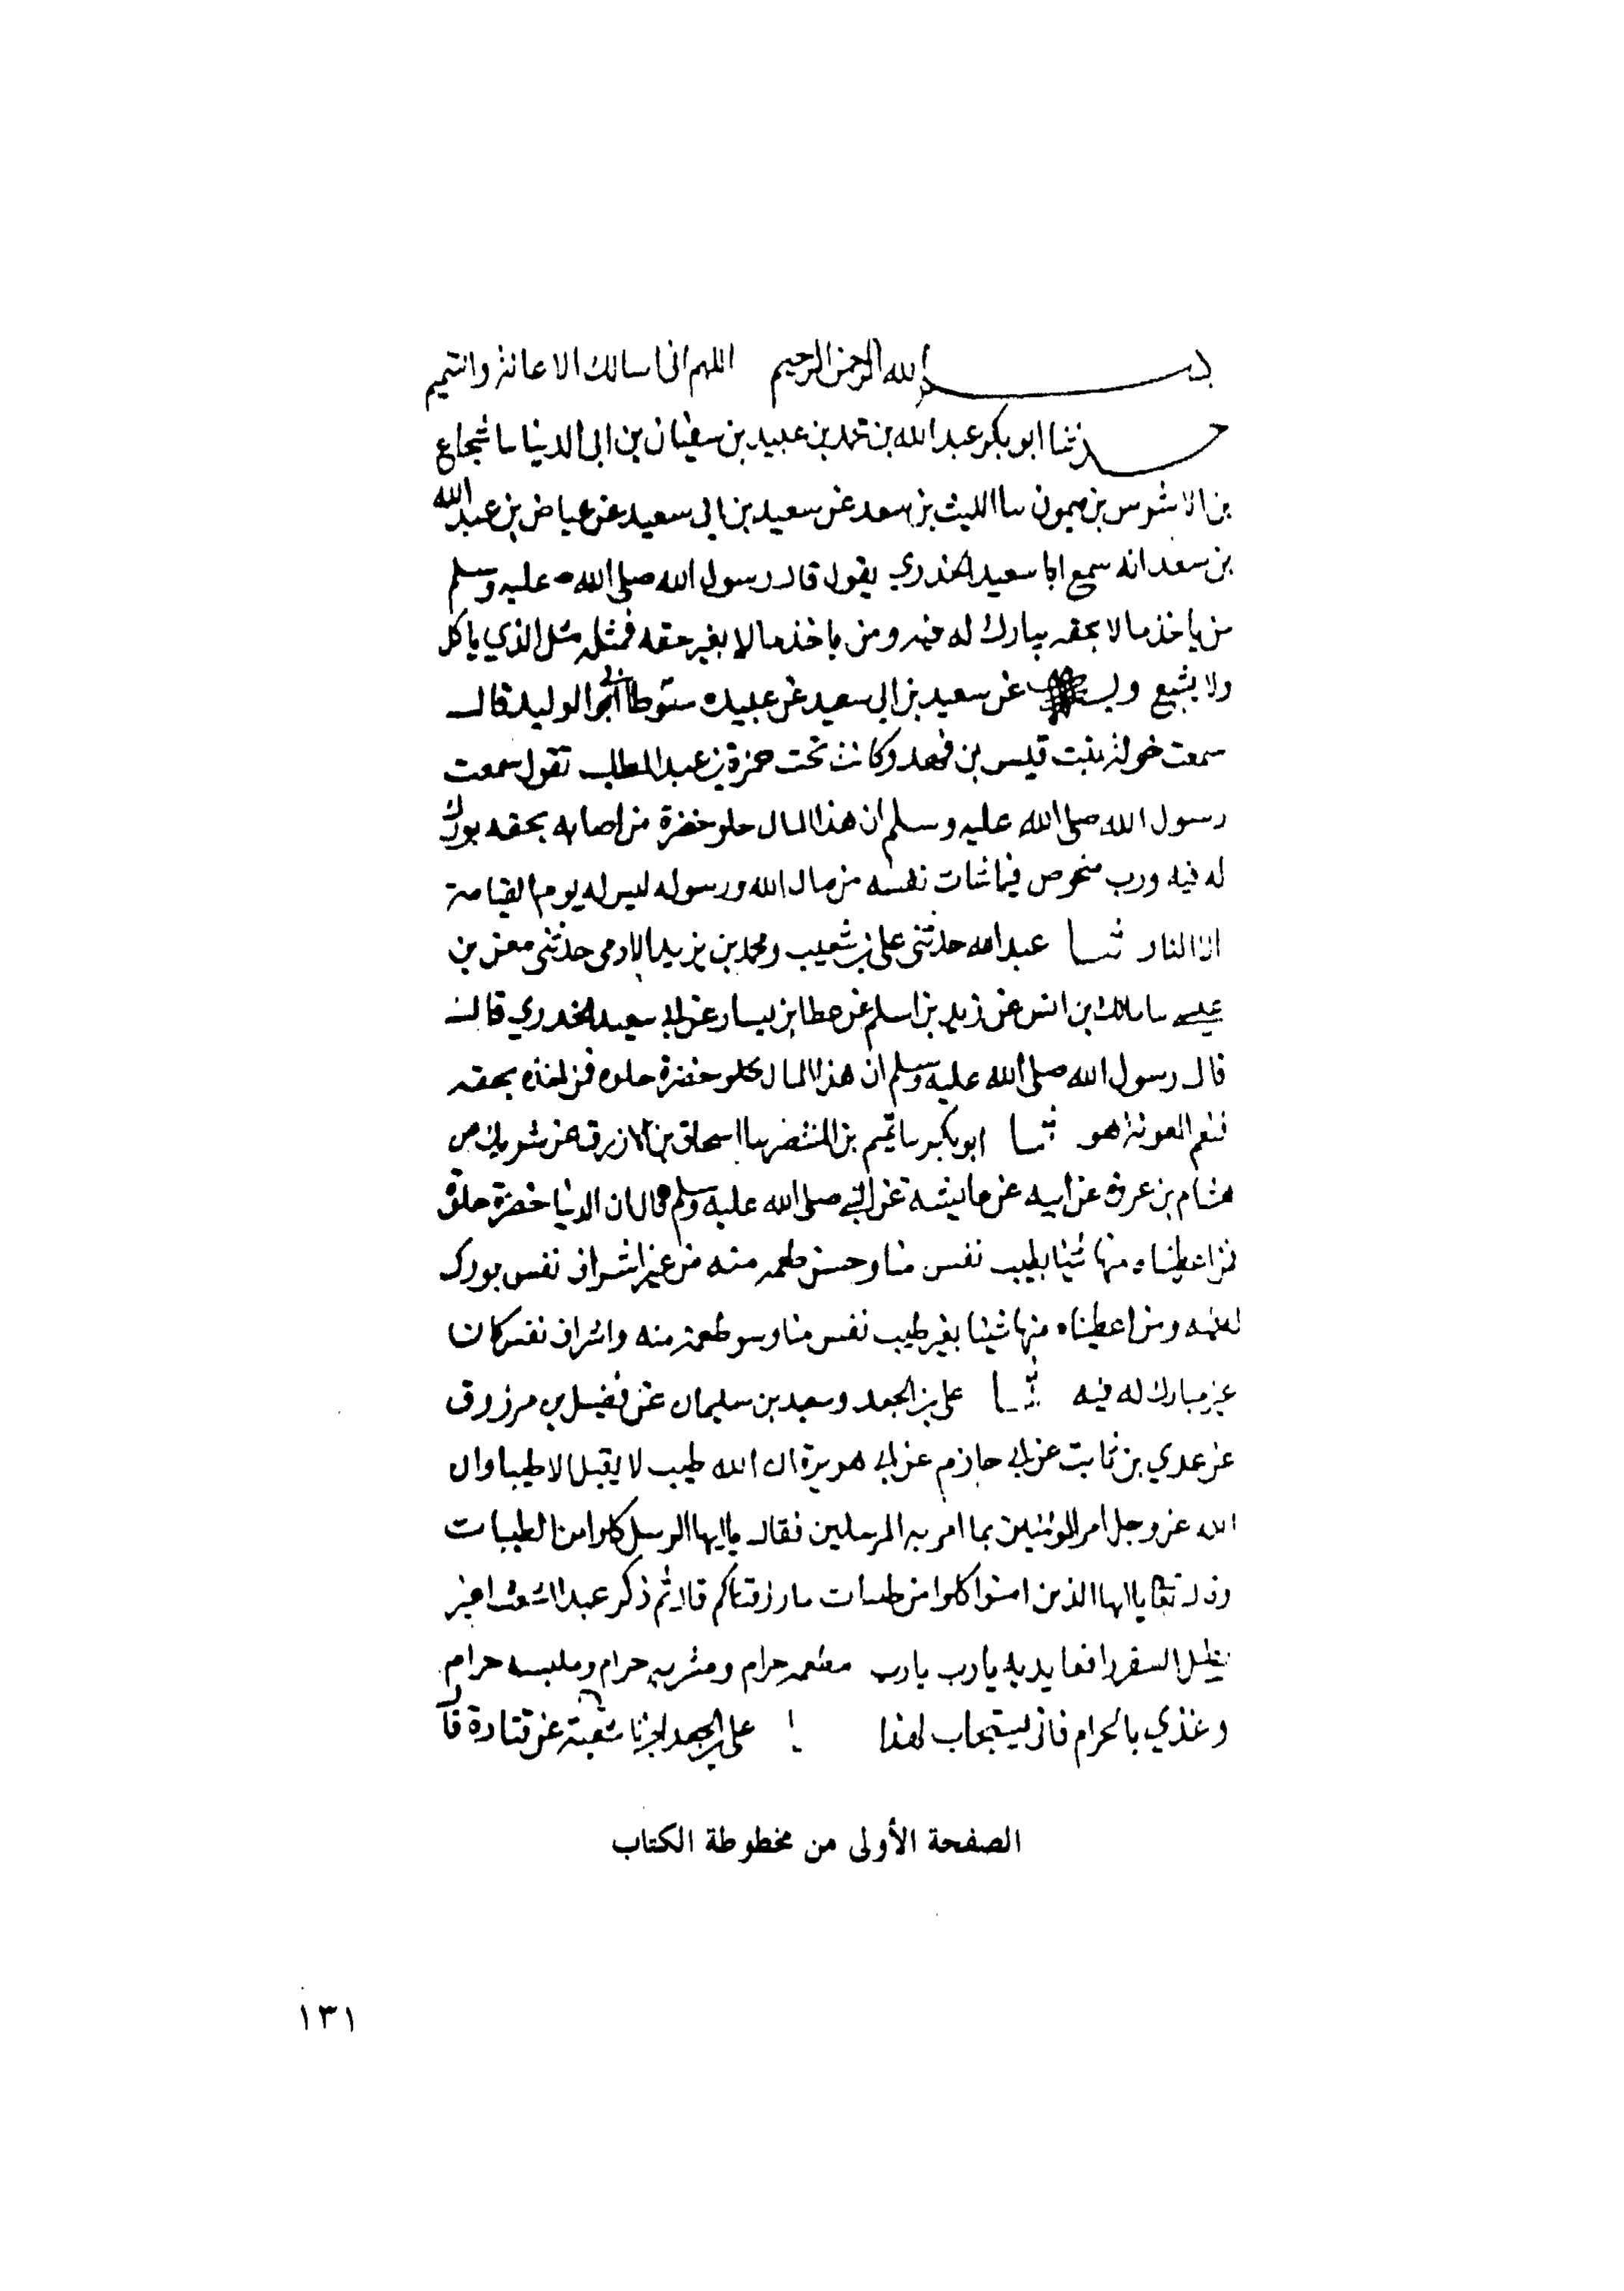 بسم الله الرحمن الرحيم اللهم انى اسالك الاعانة والتتميم
حدثنا ابو بكر عبد الله بن محمد بن عبيد بن سفيان بن ابى الدنيا سا شجاع
بن الاشرس بن ميمون سا الليث بن سعد عن سعيد بن ابى سعيد عن عياض بن عبد الله
بن سعد انه سمع ابا سعيد الخدري يقول قال رسول الله صلى الله عليه وسلم
من ياخذ مالا بحقه يبارك له فيه ومن ياخذ مالا بغير حقه فمثله مثل الذي ياكل
ولا يشبع وبه عن سعيد بن ابى سعيد عن عبيده سنوطا ابى الوليد قال
سمعت خولة بنت قيس بن فهد وكانت تحت حمزة بن عبد المطلب تقول سمعت
رسول الله صلى الله عليه وسلم ان هذا المال حلو خضرة من اصابه بحقه بورك
له فيه ورب متخوض فيما شات نفسه من مال الله ورسوله ليس له يوم القيامة
الا النار ثنا عبد الله حدثنى على بن شعيب ومحمد بن يزيد الادمى حدثنى معن بن
عيسى سا مالك بن انس عن زيد بن اسلم عن عطا بن يسار عن ابى سعيد الخدري قال
قال رسول الله صلى الله عليه وسلم ان هذا المال حلو خضرة حلوه فمن اخذه بحقه
فنعم المعونة هو ثنا ابو بكر سا تميم بن المنتصر سا اسحاق بن الازرق عن شريك عن
هشام بن عروة عن ابيه عن عايشه عن النبى صلى الله عليه وسلم قال ان الدنيا خضرة حلوة
فمن اعطيناه منها شيئا بطيب نفس منا وحسن طعمه منه من غير اشراف نفس بورك
له فيه ومن اعطيناه منها شيئا بغير طيب نفس منا وسو طعمة منه واشراف نفس كان
غير مبارك له فيه ثنا على بن الجعد وسعيد بن سليمان عن فضيل بن مرزوق
عن عدي بن ثابت عن ابى حازم عن ابى هريرة ان الله طيب لا يقبل الا طيبا وان
الله عز وجل امر المومنين بما امر به المرسلين فقال يا ايها الرسل كلوا من الطيبات
وقال تعالى يا ايها الذين امنوا كلوا من طيبات ما رزقناكم قال ثم ذكر عبدا اشعث اغبر
يطيل السفر رافعا يديه يا رب يا رب مطعمه حرام ومشربه حرام وملبسه حرام
وغذي بالحرام فانى يستجاب لهذا على بن الجعد اخبرنا شعبة عن قتادة قال
الصفحة الأولى من مخطوطة الكتاب
١٣١